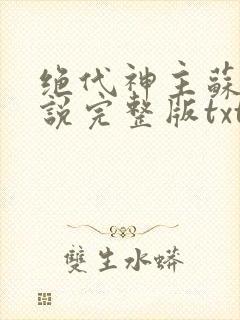 绝代神主蘇
說完整版txt
雙生水蟒